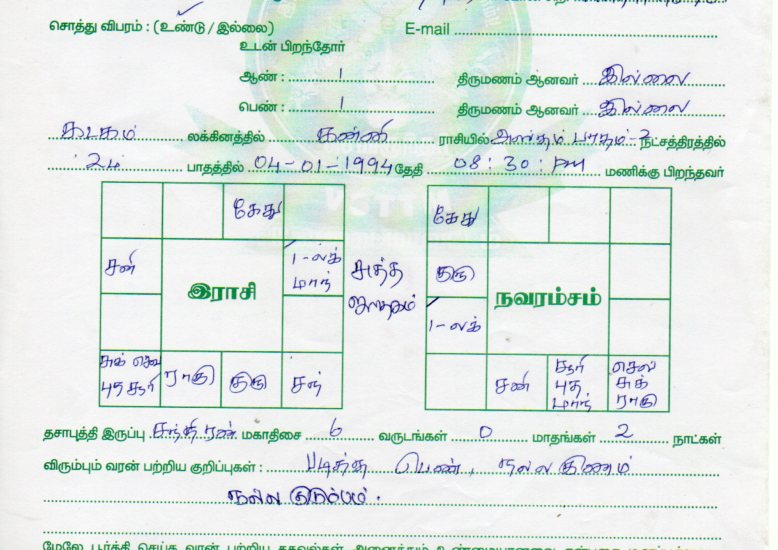 சொத்து விபரம் : (உண்டு / இல்லை) E-mail
உடன் பிறந்தோர்
ஆண் : 1 திருமணம் ஆனவர் இல்லை
பெண் : 1 திருமணம் ஆனவர் இல்லை
கடகம் லக்கினத்தில் கன்னி ராசியில் அஸ்தம் பாதம்-2 நட்சத்திரத்தில்
2ம் பாதத்தில் 04-01-1994 தேதி 08:30:PM மணிக்கு பிறந்தவர்
கேது கேது
சனி 1-லக் மாந் சுத்த குரு
இராசி ஜாதகம் நவாம்சம்
1-லக்
சுக் செவ் ராகு குரு சந் சனி சூரி செவ்
புத சூரி புத சுக்
மாந் ராகு
தசாபுத்தி இருப்பு சந்திரன் மகாதிசை 6 வருடங்கள் 0 மாதங்கள் 2 நாட்கள்
விரும்பும் வரன் பற்றிய குறிப்புகள் : படித்த பெண், நல்ல குணம்
நல்ல குடும்பம்.